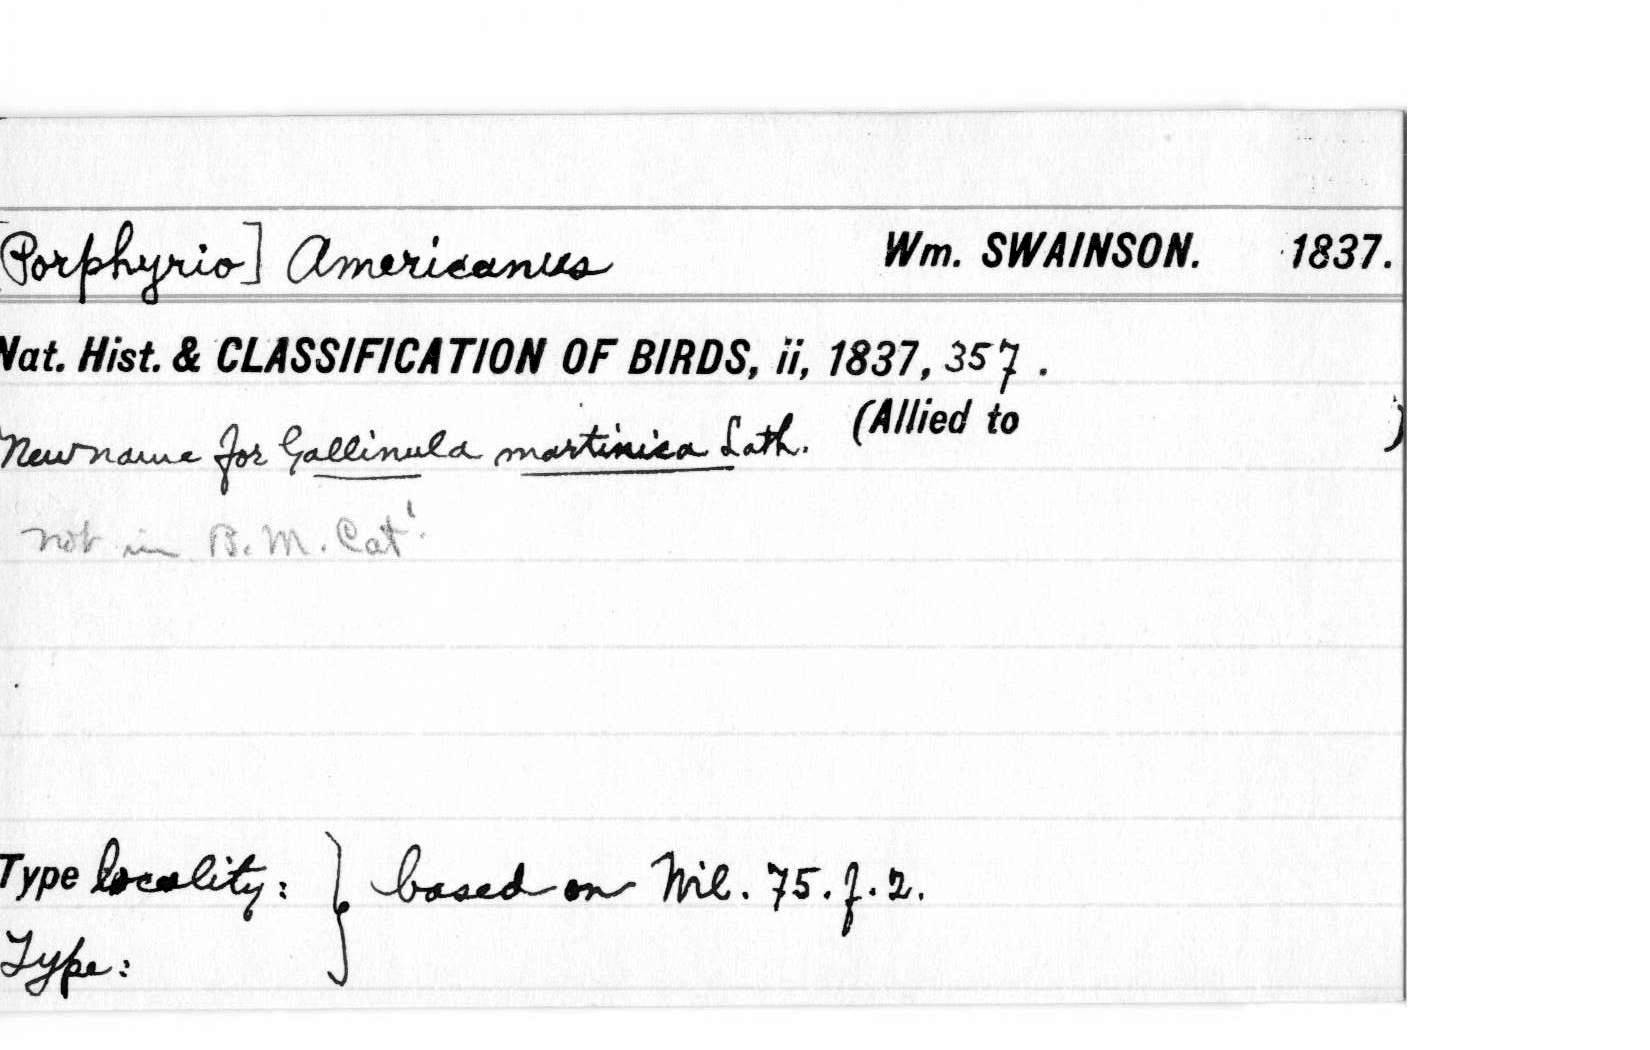 [Porphyrio] Americanus Wm. SWAINSON. 1837.
Nat. Hist. & CLASSIFICATION OF BIRDS, ii, 1837, 357.
(Allied to )
New name for Gallinula martinica Lath.
not in B. M. Cat!
Type locality: } based on Wil. 75. f. 2.
Type: